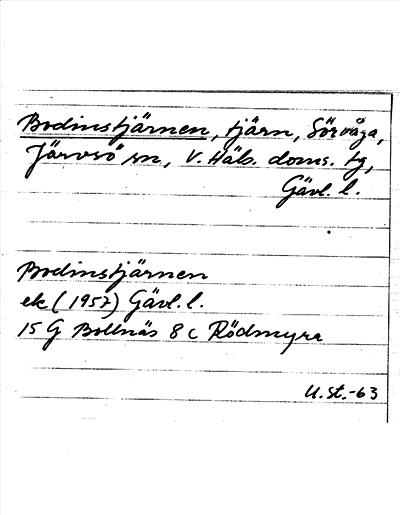 Bodinstjärnen, tjärn, Sörvåga,
Järvsö sn, V. Häls. doms. tg,
Gävl. l.
Bodinstjärnen
ek (1957) Gävl. l.
15 G Bollnäs 8 c Rödmyra
U.St.-63